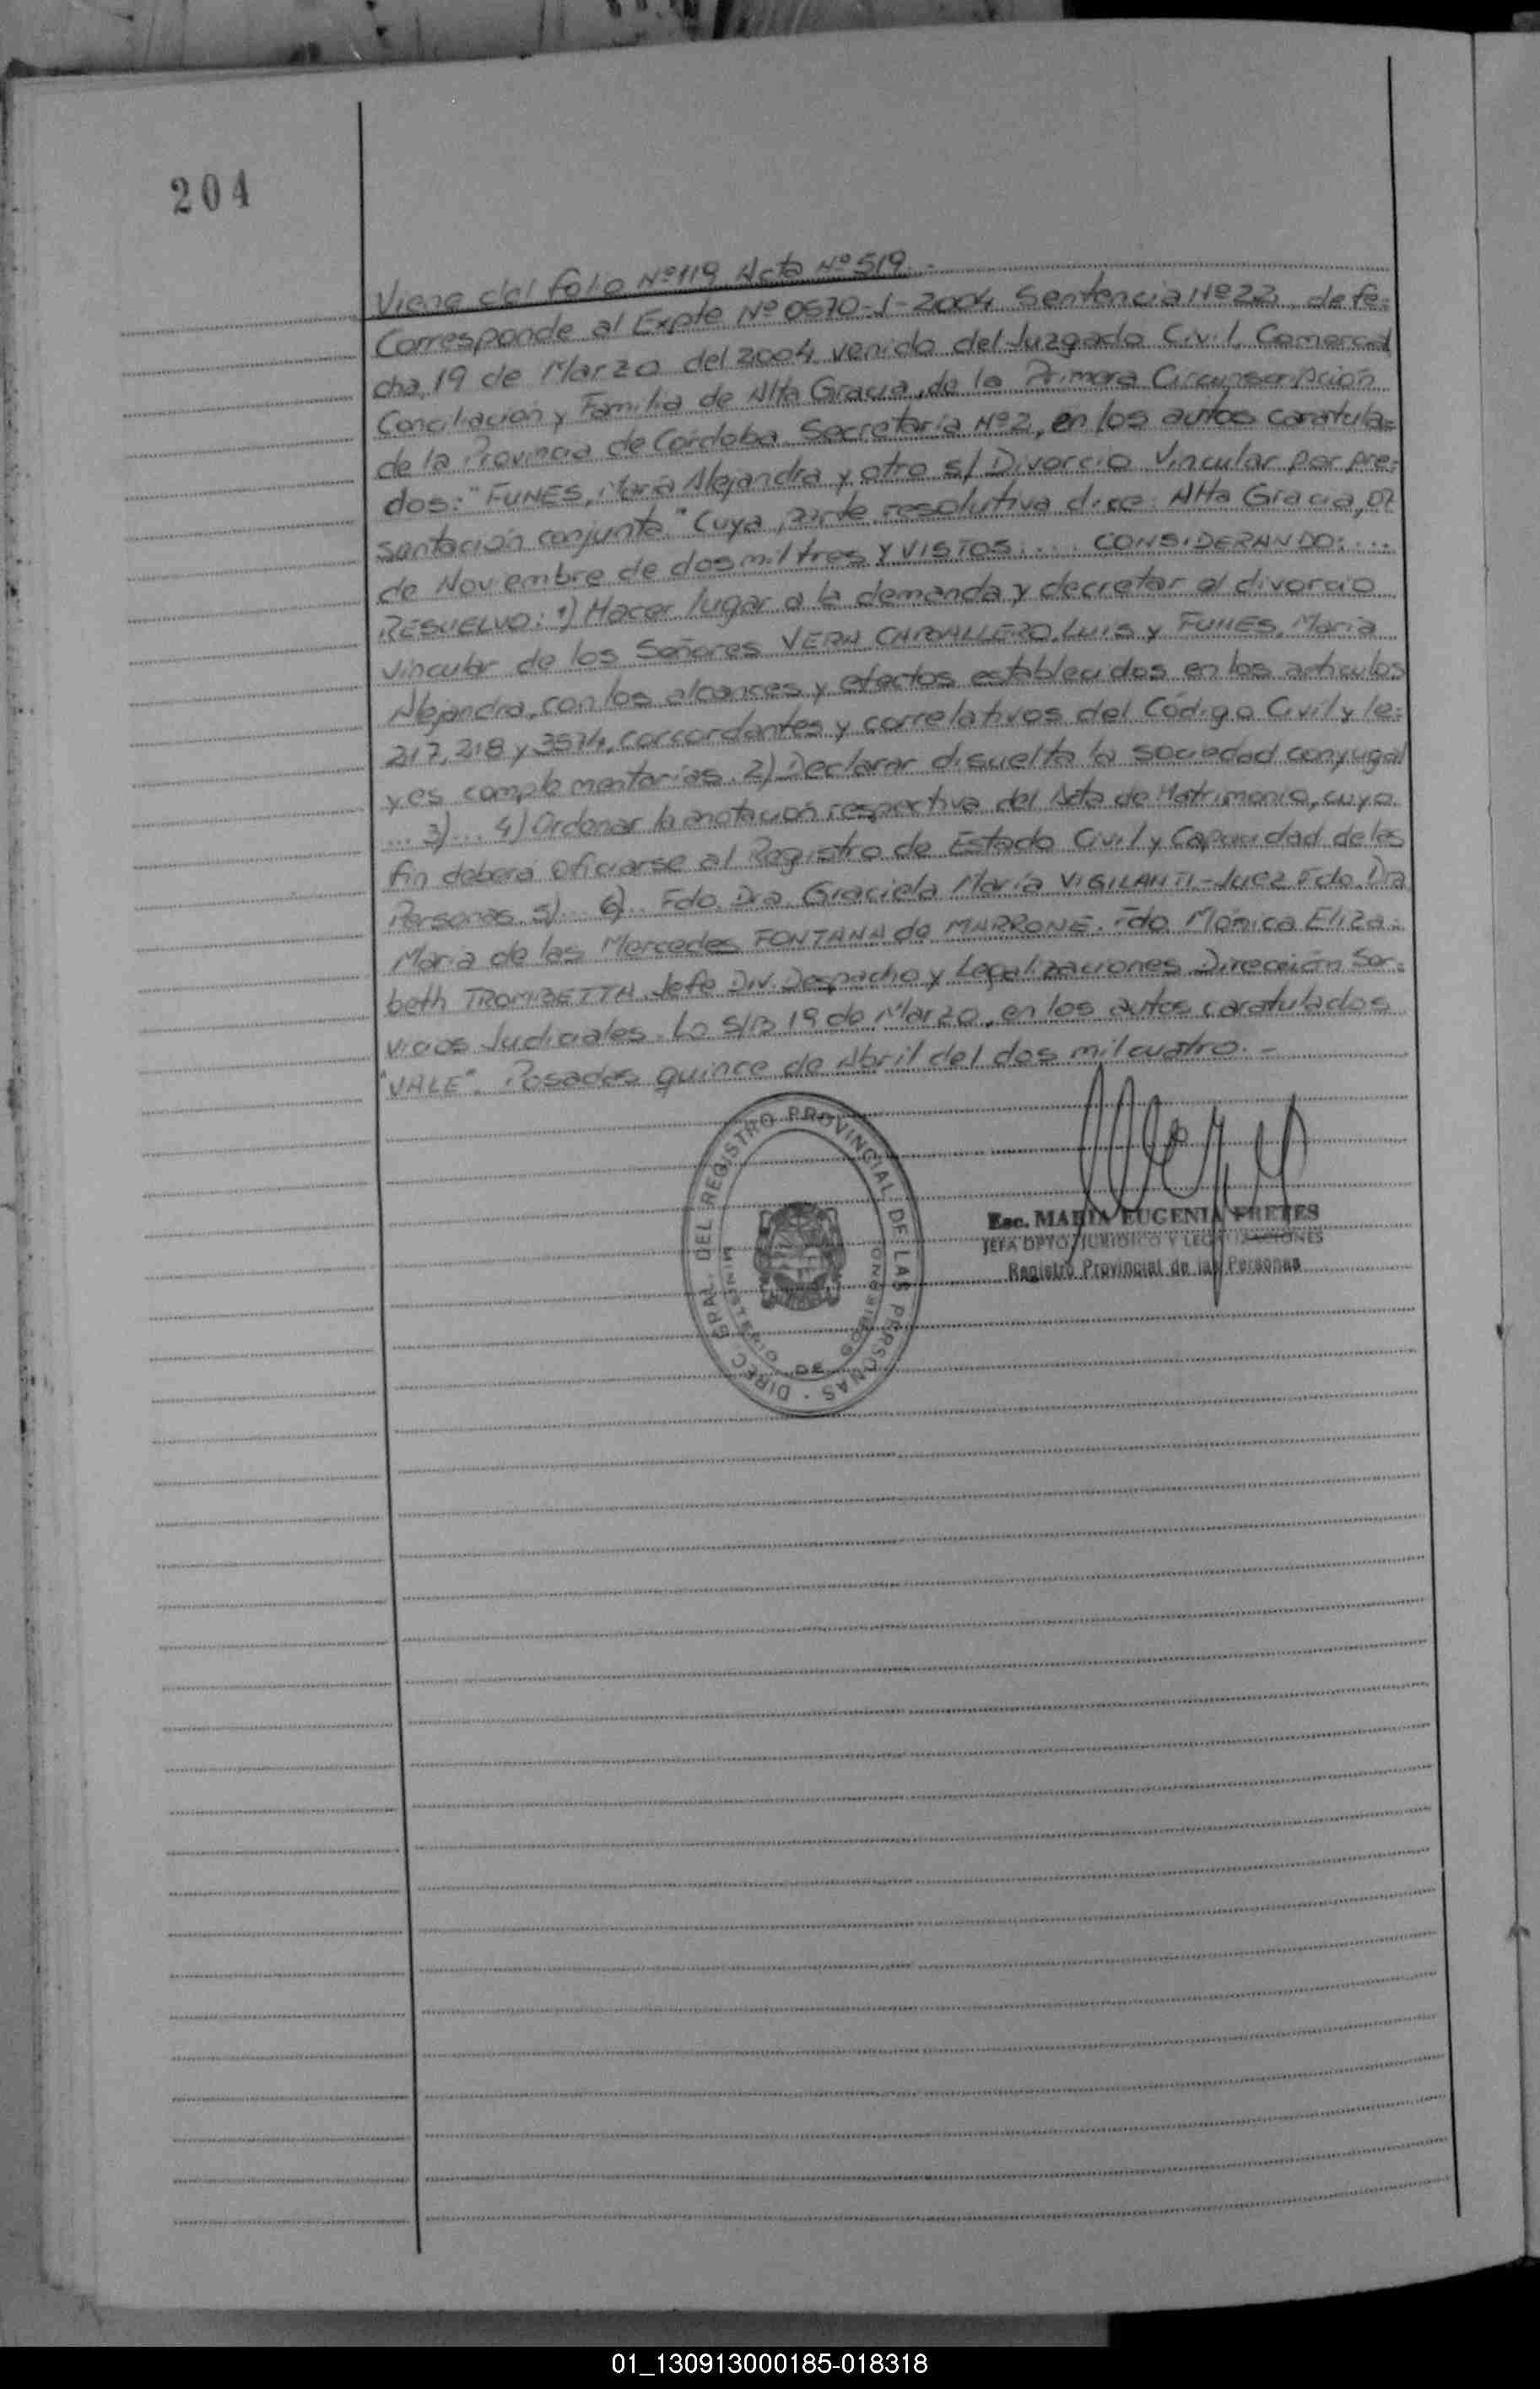 204
Viene del folio Nº 119 Acta Nº 519.-
Corresponde al Expte Nº 0570-J-2004 Sentencia Nº 22, de fe=
cha, 19 de Marzo del 2004 venido del Juzgado Civil, Comercial
Conciliación y Familia de Alta Gracia, de la Primera Circunscripción
de la Provincia de Córdoba Secretaría Nº 2, en los autos caratula=
dos: "FUNES, María Alejandra y otro s/ Divorcio Vincular por pre=
sentación conjunta." Cuya parte resolutiva dice: Alta Gracia, 07
de Noviembre de dos mil tres Y VISTOS: ... CONSIDERANDO: ...
RESUELVO: 1) Hacer lugar a la demanda y decretar el divorcio
vincular de los Señores VERA CARBALLERO, Luis y FUNES, María
Alejandra, con los alcances y efectos establecidos en los artículos
217, 218 y 3574, corcordantes y correlativos del Código Civil y le=
yes complementarias. 2) Declarar disuelta la sociedad conyugal
... 3)... 4) Ordenar la anotación respectiva del Acta de Matrimonio, cuyo
fin deberá oficiarse al Registro de Estado Civil y Capacidad de las
Personas. 5)... 6)... Fdo. Dra. Graciela María VIGILANTI - Juez Fdo. Dra
María de las Mercedes FONTANA de MARRONE. Fdo Mónica Eliza=
beth TROMBETTA Jefe Div. Despacho y Legalizaciones Dirección Ser=
vicios Judiciales. Lo S/B 19 de Marzo, en los autos caratulados
"VALE". Posadas quince de Abril del dos mil cuatro.-
DIREC. GRAL. DEL REGISTRO PROVINCIAL DE LAS PERSONAS
MINISTERIO DE GOBIERNO
Esc. MARIA EUGENIA FRETES
JEFA DPTO. JURIDICO Y LEGALIZACIONES
Registro Provincial de las Personas
01_130913000185-018318